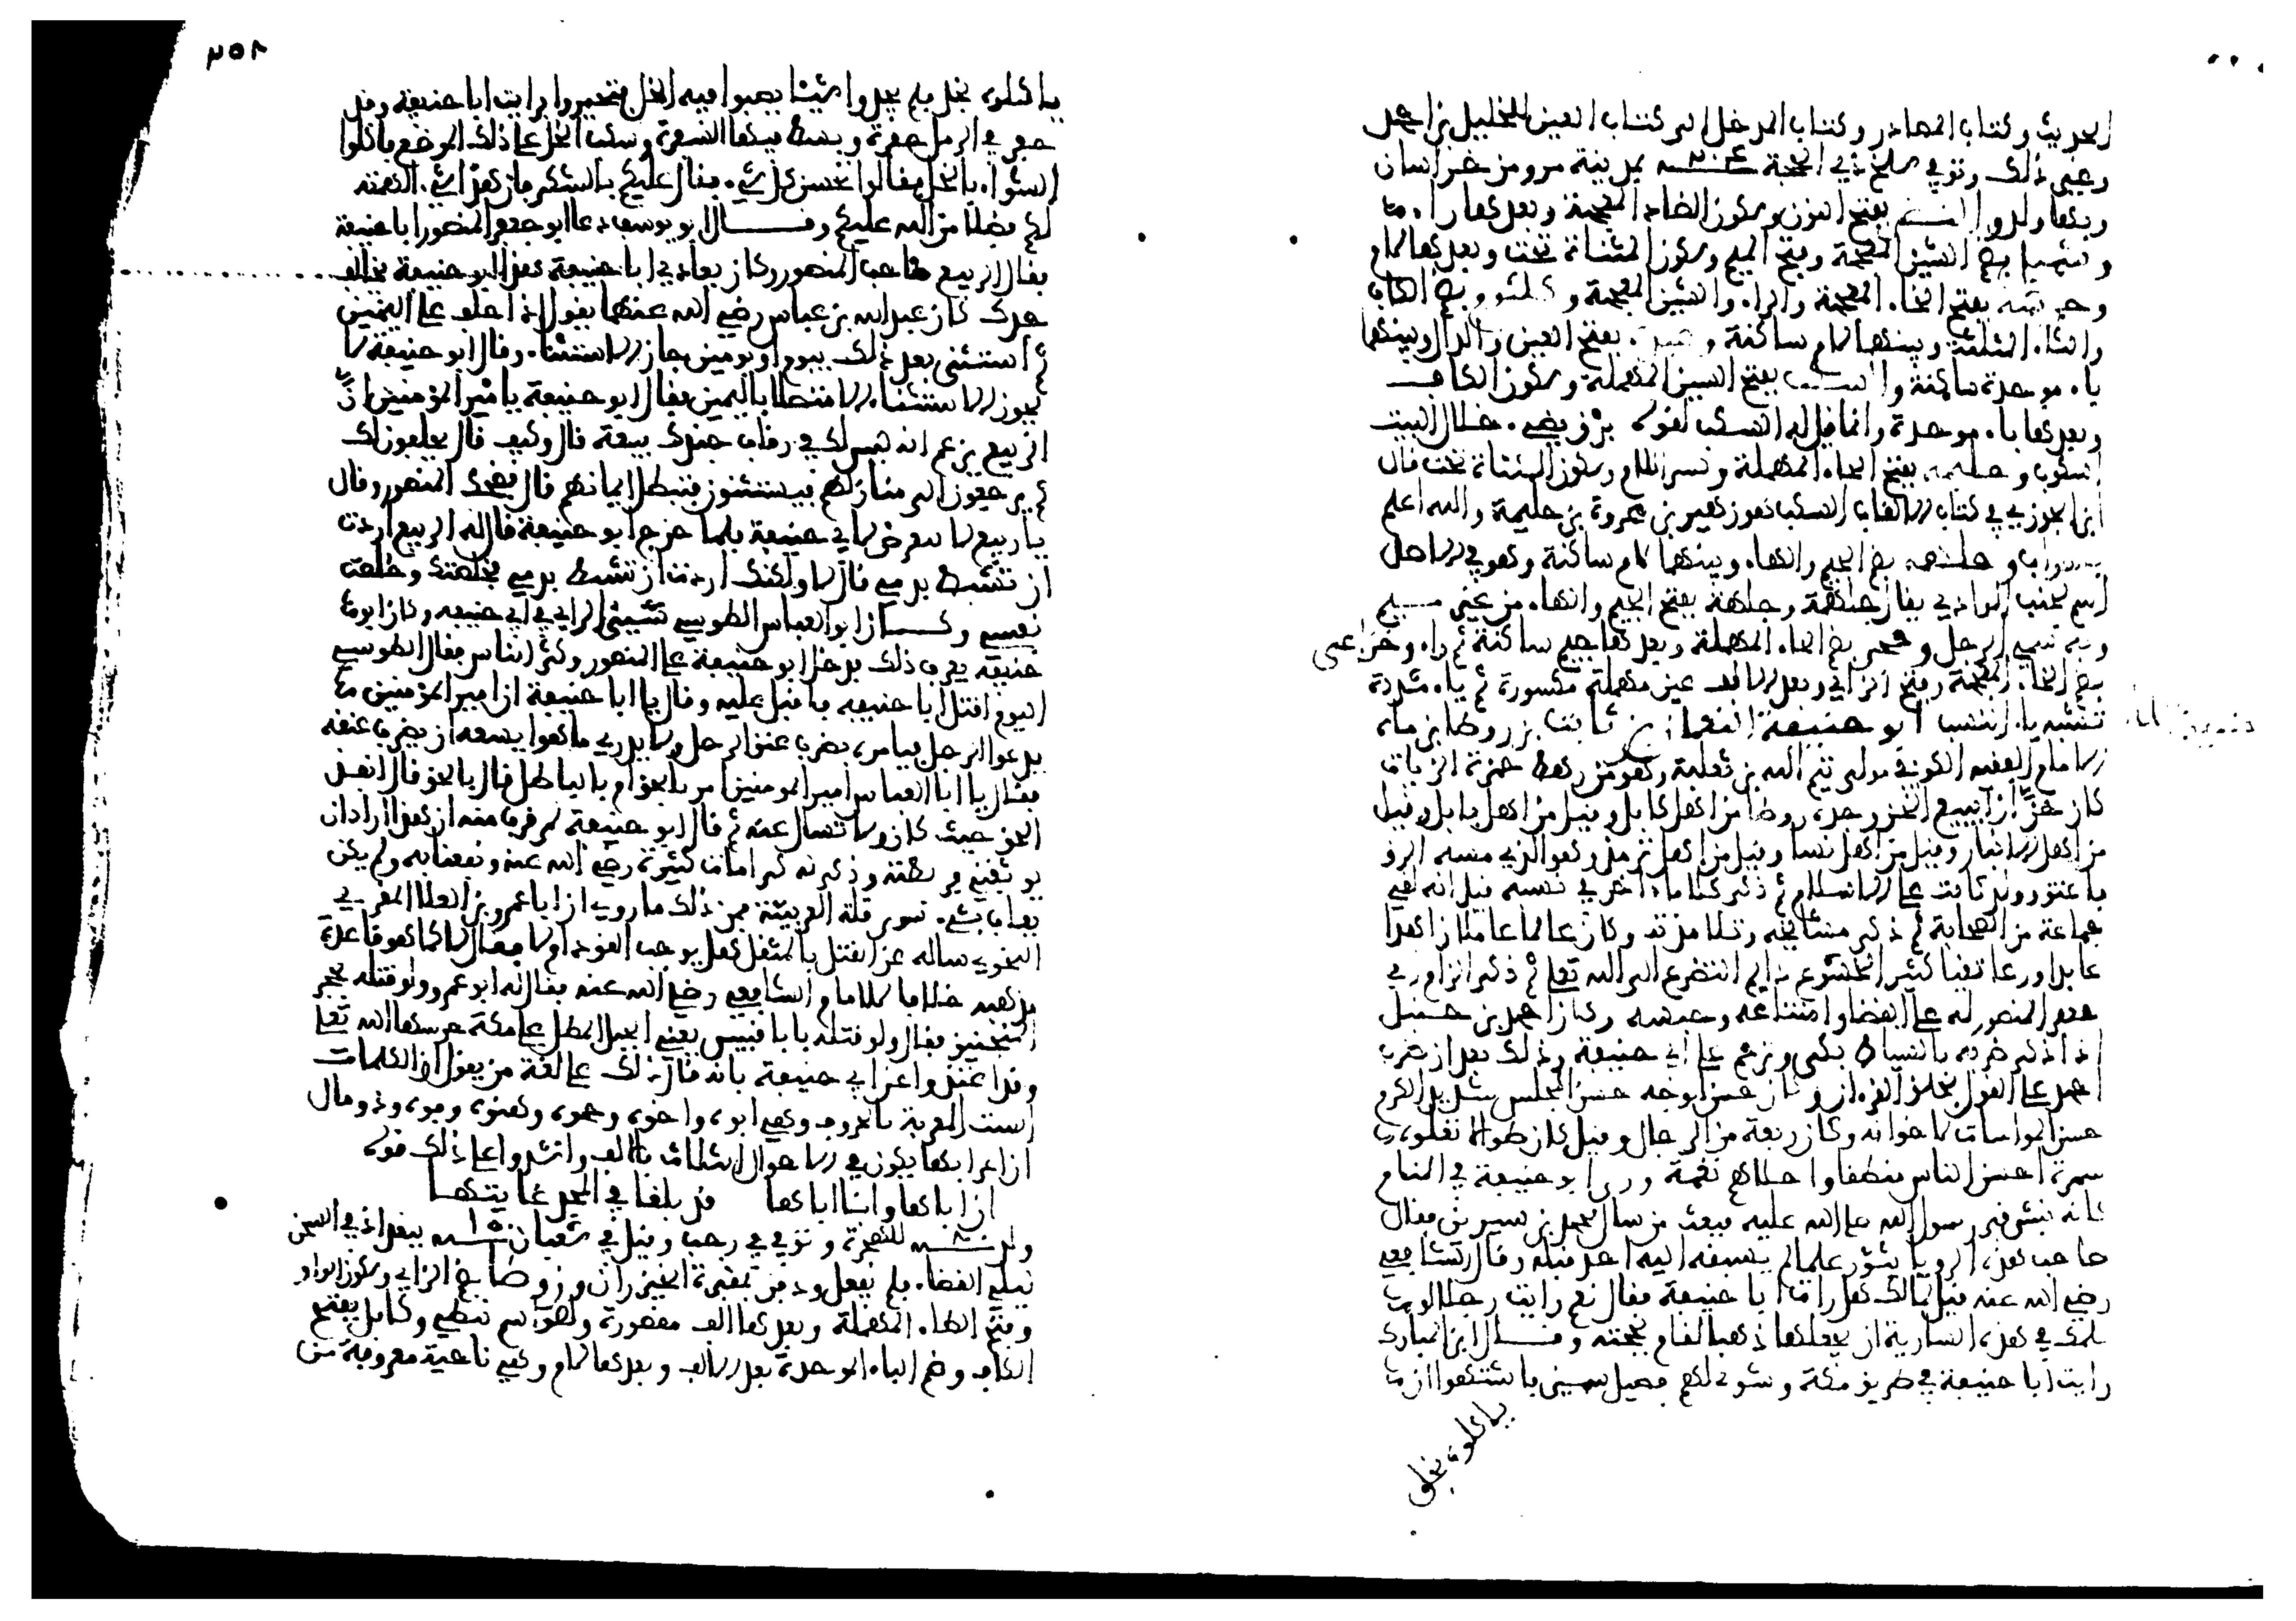 الحديث وكتاب المصادر وكتاب المدخل الى كتاب العين للخليل بن احمد
وغير ذلك وتوفي سلخ ذي الحجة سنة ٢٠٤ بمدينة مرو من خراسان
بفتح النون وسكون الضاد المعجمة وبعدها راء
وشميل بضم الشين المعجمة وفتح الميم وسكون المثناة تحت وبعدها لام
وخرشة بفتح الخاء المعجمة والراء والشين المعجمة وكلثوم بضم الكاف
والثاء المثلثة وبينهما لام ساكنة وعبدة بفتح العين والدال وبينهما
باء موحدة ساكنة والسكب بفتح السين المهملة وسكون الكاف
وبعدها باء موحدة وانما قيل له السكب لقوله برق يضيء خلال البيت
اسكوب وحليمة بفتح الحاء المهملة وكسر اللام وسكون المثناة تحت قال
ابن الجوزي في كتاب الالقاب السكب هو زهير بن عروة بن حليمة والله اعلم
وجلهمة بضم الجيم والهاء وبينهما لام ساكنة وهو في الاصل
اسم لجنب الوادي يقال جلهمة وجلهة بفتح الجيم والهاء من غير ميم
وبه سمي الرجل وحجر بضم الحاء المهملة وبعدها جيم ساكنة ثم راء وخزاعي
بضم الخاء المعجمة وفتح الزاي وبعد الالف عين مهملة مكسورة ثم ياء مشددة
تشبه ياء النسب ابو حنيفة النعمان بن ثابت بن زوطا بن ماه
الامام الفقيه الكوفي مولى تيم الله بن ثعلبة وهو من رهط حمزة الزيات
كان خزازا يبيع الخز وجده زوطا من اهل كابل وقيل من اهل بابل وقيل
من اهل الانبار وقيل من اهل نسا وقيل من اهل ترمذ وهو الذي مسه الرق
فاعتق وولد ثابت على الاسلام ثم ذكر كلاما اخر في نسبه قيل انه لقي
جماعة من الصحابة ثم ذكر مشايخه وتلامذته وكان عالما عاملا زاهدا
عابدا ورعا تقيا كثير الخشوع دايم التضرع الى الله تعلى ثم ذكر الزام ابي
جعفر المنصور له على القضا وامتناعه وحبسه وكان احمد بن حنبل
اذا ذكر ضربه بالسياط بكى وترحم على ابي حنيفة وذلك بعد ان ضرب
احمد على القول بخلق القرءان وكان حسن الوجه حسن المجلس شديد الكرم
حسن المواسات لاخوانه وكان ربعة من الرجال وقيل كان طوالا تعلوه
سمرة احسن الناس منطقا واحلاهم نغمة وراى ابو حنيفة في المنام
كانه ينبش قبر رسول الله صلى الله عليه فبعث من سال محمد بن سيرين فقال
صاحب هذه الرويا يثور علما لم يسبقه اليه احد قبله وقال الشافعي
رضي الله عنه قيل لمالك هل رايت ابا حنيفة فقال نعم رايت رجلا لو
كلمك في هذه السارية ان يجعلها ذهبا لقام بحجته وقال ابن المبارك
رايت ابا حنيفة في طريق مكة وشوي لهم فصيل سمين فاشتهوا ان
ياكلوه بخل
٢٥٨
ياكلوه بخل فلم يجدوا شيئا يصبوا فيه الخل فتحيروا فرايت ابا حنيفة وقد
حفر في الرمل حفرة وبسط عليها السفرة وسكب الخل على ذلك الموضع فاكلوا
الشواء بالخل فقالوا تحسن كل شيء فقال عليكم بالشكر فان هذا شيء الهمته
لكم فضلا من الله عليكم وقال ابو يوسف دعا ابو جعفر المنصور ابا حنيفة
فقال الربيع حاجب المنصور وكان يعادي ابا حنيفة هذا ابو حنيفة يخالف
جدك كان عبد الله بن عباس رضي الله عنهما يقول اذا حلف على اليمين
ثم استثنى بعد ذلك بيوم او يومين جاز الاستثناء وقال ابو حنيفة لا
يجوز الاستثناء الا متصلا باليمين فقال ابو حنيفة يا امير المؤمنين ان
الربيع يزعم انه ليس لك في رقاب جندك بيعة قال وكيف قال يحلفون لك
ثم يرجعون الى منازلهم فيستثنون فتبطل ايمانهم قال فضحك المنصور وقال
يا ربيع لا تعرض لابي حنيفة فلما خرج ابو حنيفة قال له الربيع اردت
ان تشيط بدمي قال لا ولكنك اردت ان تشيط بدمي فخلصتك وخلصت
نفسي وكان ابو العباس الطوسي سيئ الراي في ابي حنيفة وكان ابو
حنيفة يعرف ذلك فدخل ابو حنيفة على المنصور وكثر الناس فقال الطوسي
اليوم اقتل ابا حنيفة فاقبل عليه وقال يا ابا حنيفة ان امير المؤمنين
يدعوا الرجل فيامره بضرب عنق الرجل ولا يدري ما هو ايسعه ان يضرب عنقه
فقال يا ابا العباس امير المومنين يامر بالحق ام بالباطل قال بالحق قال انفذ
الحق حيث كان ولا تسال عنه ثم قال ابو حنيفة لمن قرب منه ان هذا اراد ان
يوثقني فربطته وذكر له كرامات كثيرة رضي الله عنه ونفعنا به ولم يكن
يعاب بشيء سوى قلة العربية فمن ذلك ما روي ان ابا عمرو بن العلا المقري
النحوي ساله عن القتل بالمثقل هل يوجب القود ام لا فقال لا كما هو قاعدة
مذهبه خلافا للامام الشافعي رضي الله عنه فقال له ابو عمرو ولو قتله بحجر
المنجنيق فقال ولو قتله بابا قبيس يعني الجبل المطل على مكة حرسها الله تعلى
وقد اعتذروا عن ابي حنيفة بانه قال ذلك على لغة من يقول ان الكلمات
الست المعربة بالحروف وهي ابوه واخوه وحموه وهنوه وفوه وذو مال
ان اعرابها يكون في الاحوال الثلاث بالالف وانشدوا على ذلك قوله
ان اباها وابا اباها قد بلغا في المجد غايتاها
ولد سنة ٨٠ للهجرة وتوفي في رجب وقيل في شعبان سنة ١٥٠ ببغداد في السجن
ليلي القضاء فلم يفعل ودفن بمقبرة الخيزران وزوطا بضم الزاي وسكون الواو
وفتح الطاء المهملة وبعدها الف مقصورة وهو اسم نبطي وكابل بفتح
الكاف وضم الباء الموحدة بعد الالف وبعدها لام وهي ناحية معروفة من